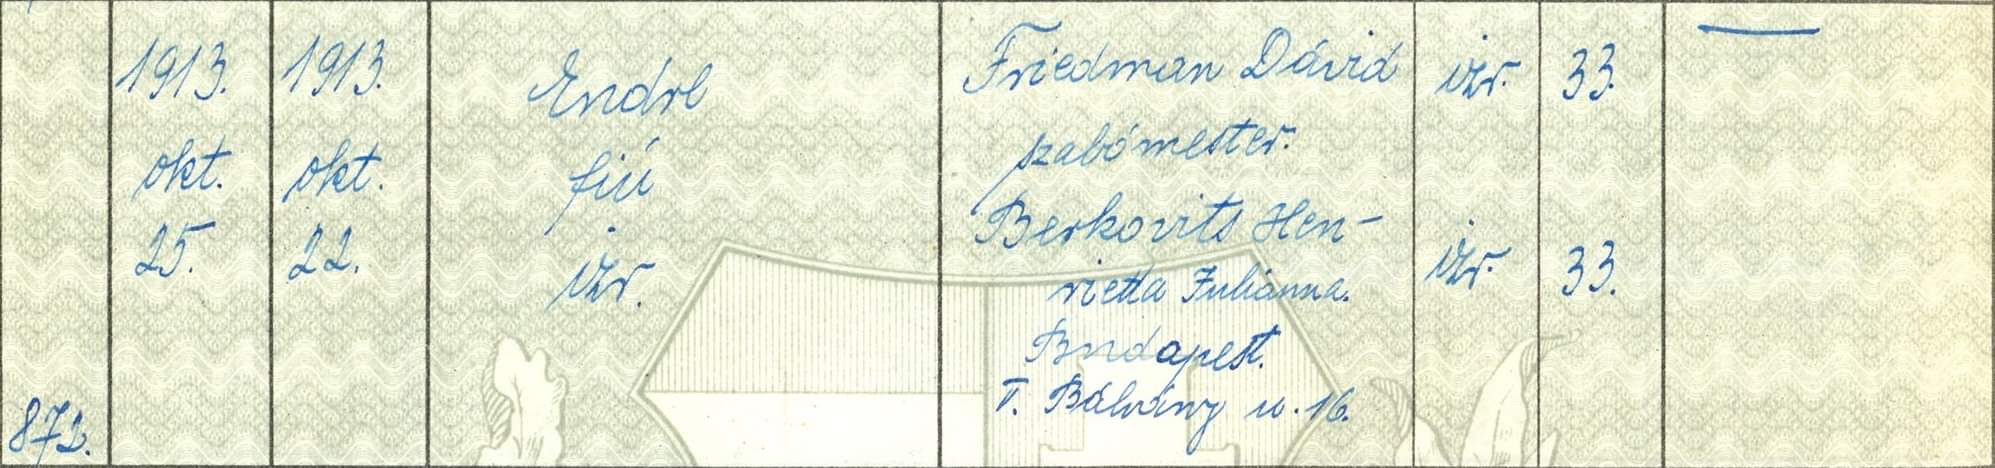 1913.
okt.
25.
1913.
okt.
22.
Endre
fiú
izr.
Friedman Dávid
szabómester.
Berkovits Hen-
rietta Juliánna.
Budapest.
V. Bálvány u. 16.
izr.
izr.
33.
33.
872.